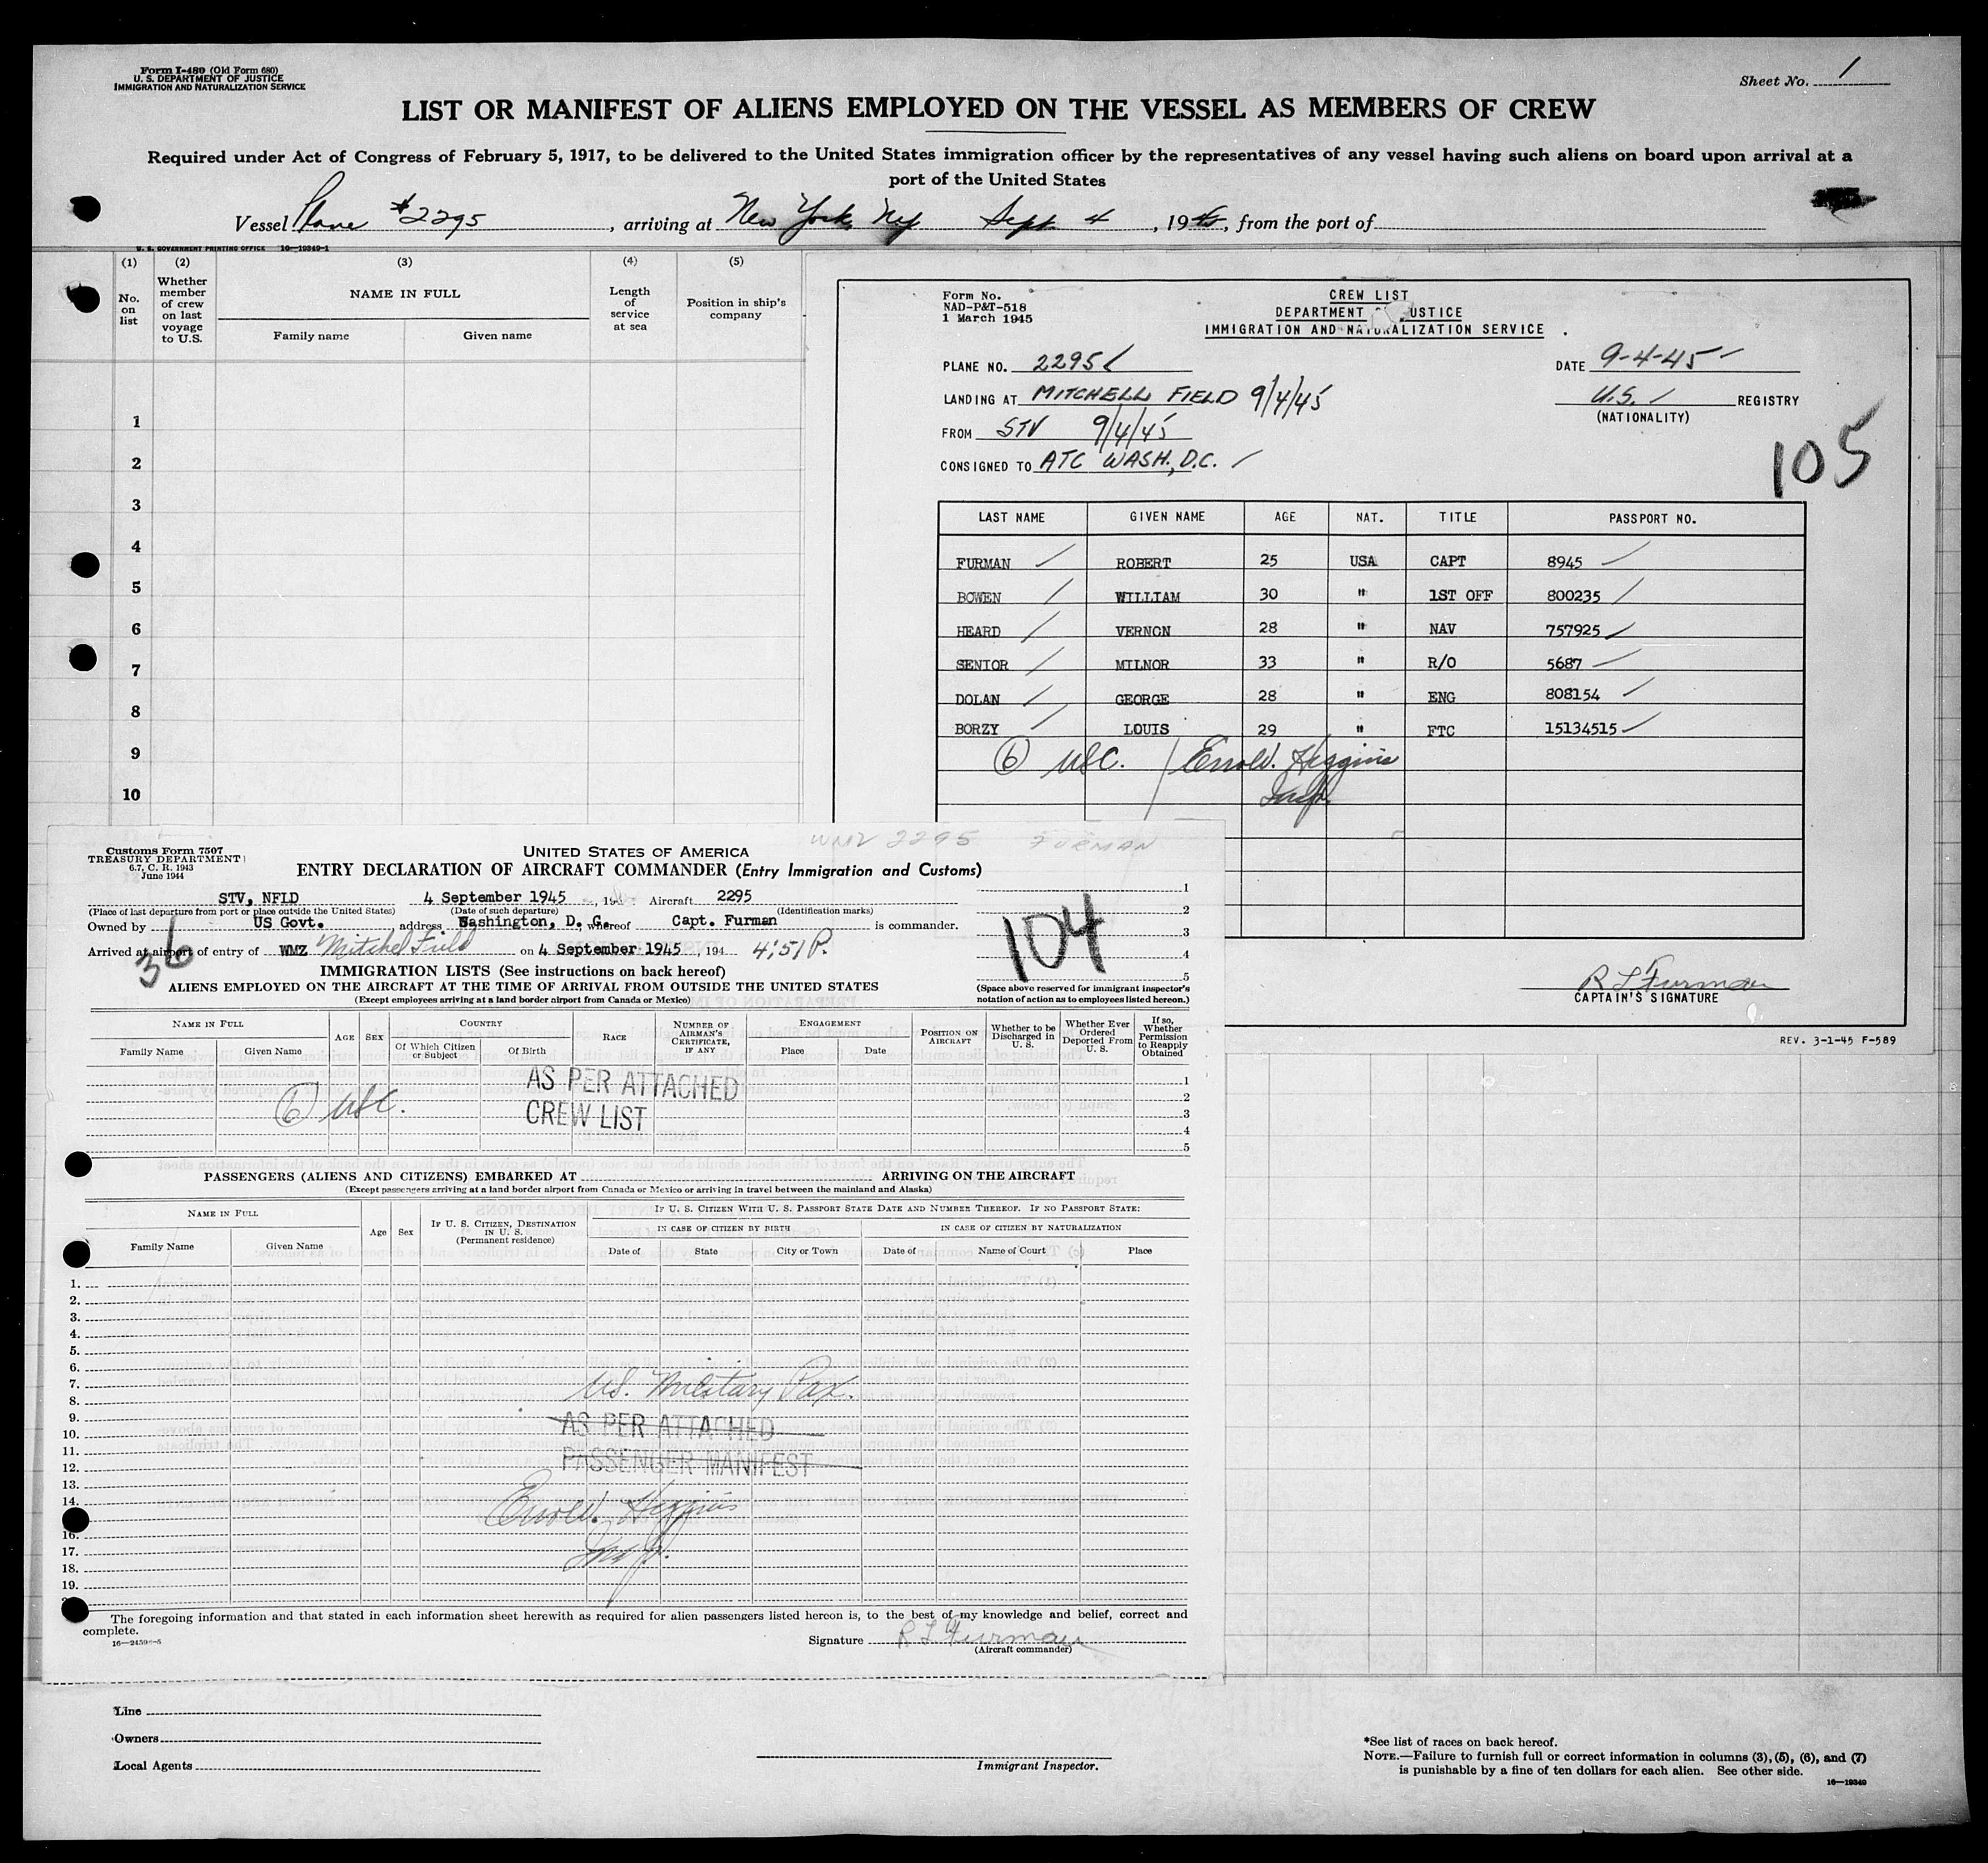 Form I-489 (Old Form 680)
U. S. DEPARTMENT OF JUSTICE
IMMIGRATION AND NATURALIZATION SERVICE
Sheet No. 1
LIST OR MANIFEST OF ALIENS EMPLOYED ON THE VESSEL AS MEMBERS OF CREW
Required under Act of Congress of February 5, 1917, to be delivered to the United States immigration officer by the representatives of any vessel having such aliens on board upon arrival at a
port of the United States
Vessel Plane #2295, arriving at New York, NY Sept 4, 1945, from the port of
U. S. GOVERNMENT PRINTING OFFICE 16—19349-1
(1) (2) (3) (4) (5)
No. on list
Whether member of crew on last voyage to U.S.
NAME IN FULL
Family name Given name
Length of service at sea
Position in ship's company
1
2
3
4
5
6
7
8
9
10
Form No.
NAD-P&T-518
1 March 1945
CREW LIST
DEPARTMENT JUSTICE
IMMIGRATION AND NATURALIZATION SERVICE
PLANE NO. 2295
DATE 9-4-45
LANDING AT MITCHELL FIELD 9/4/45
U.S. REGISTRY
(NATIONALITY)
FROM STV 9/4/45
CONSIGNED TO ATC WASH., D.C.
105
LAST NAME GIVEN NAME AGE NAT. TITLE PASSPORT NO.
FURMAN ROBERT 25 USA CAPT 8945
BOWEN WILLIAM 30 " 1ST OFF 800235
HEARD VERNON 28 " NAV 757925
SENIOR MILNOR 33 " R/O 5687
DOLAN GEORGE 28 " ENG 808154
BORZY LOUIS 29 " FTC 15134515
6 USC. / Errol W. Higgins
Insp.
R L Furman
CAPTAIN'S SIGNATURE
REV. 3-1-45 F-589
WMZ 2295 FURMAN
Customs Form 7507
TREASURY DEPARTMENT
6.7, C. R. 1943
June 1944
UNITED STATES OF AMERICA
ENTRY DECLARATION OF AIRCRAFT COMMANDER (Entry Immigration and Customs)
STV, NFLD 4 September 1945, 19 Aircraft 2295
(Place of last departure from port or place outside the United States) (Date of such departure) (Identification marks)
Owned by US Govt. address Washington, D. C. whereof Capt. Furman is commander.
Arrived at airport of entry of WMZ Mitchel Field on 4 September 1945, 194 4:51 P.
36
104
1
2
3
4
5
(Space above reserved for immigrant inspector's
notation of action as to employees listed hereon.)
IMMIGRATION LISTS (See instructions on back hereof)
ALIENS EMPLOYED ON THE AIRCRAFT AT THE TIME OF ARRIVAL FROM OUTSIDE THE UNITED STATES
(Except employees arriving at a land border airport from Canada or Mexico)
NAME IN FULL AGE SEX COUNTRY RACE NUMBER OF AIRMAN'S CERTIFICATE, IF ANY ENGAGEMENT POSITION ON AIRCRAFT Whether to be Discharged in U. S. Whether Ever Ordered Deported From U. S. If so, Whether Permission to Reapply Obtained
Family Name Given Name Of Which Citizen or Subject Of Birth Place Date
AS PER ATTACHED
CREW LIST
6 USC.
1
2
3
4
5
PASSENGERS (ALIENS AND CITIZENS) EMBARKED AT ARRIVING ON THE AIRCRAFT
(Except passengers arriving at a land border airport from Canada or Mexico or arriving in travel between the mainland and Alaska)
NAME IN FULL Age Sex IF U. S. CITIZEN, DESTINATION IN U. S. (Permanent residence) IF U. S. CITIZEN WITH U. S. PASSPORT STATE DATE AND NUMBER THEREOF. IF NO PASSPORT STATE:
IN CASE OF CITIZEN BY BIRTH IN CASE OF CITIZEN BY NATURALIZATION
Family Name Given Name Date of State City or Town Date of Name of Court Place
1.
2.
3.
4.
5.
6.
7.
8.
9.
10.
11.
12.
13.
14.
16.
17.
18.
19.
U.S. Military Pax.
AS PER ATTACHED
PASSENGER MANIFEST
Errol W. Higgins
Insp.
The foregoing information and that stated in each information sheet herewith as required for alien passengers listed hereon is, to the best of my knowledge and belief, correct and
complete.
Signature R L Furman
(Aircraft commander)
Line
Owners
Local Agents
Immigrant Inspector.
*See list of races on back hereof.
NOTE.—Failure to furnish full or correct information in columns (3), (5), (6), and (7)
is punishable by a fine of ten dollars for each alien. See other side.
16—19349